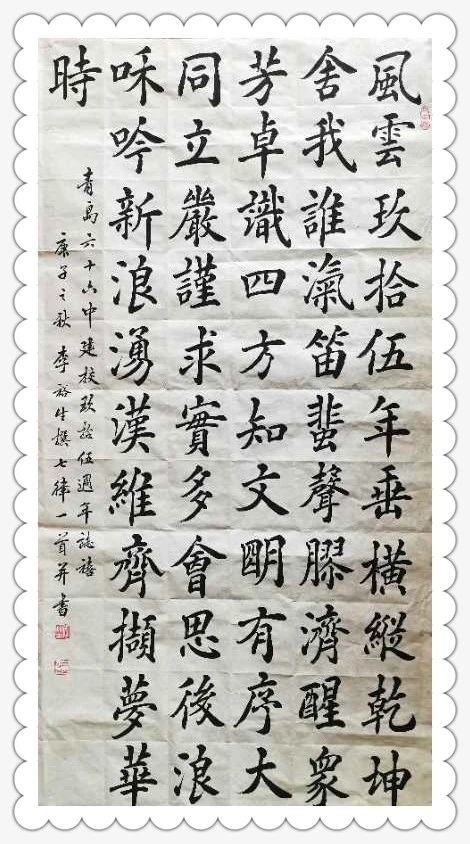 風雲玖拾伍年垂橫縱乾坤
舍我誰氣笛蜚聲膠濟醒衆
芳卓識四方知文眀有序大
同立嚴謹求實多會思後浪
咊吟新浪湧漢維齊擷夢華
時
青島六十六中建校玖拾伍週年誌禧
庚子之秋 李裕生撰七律一首并書